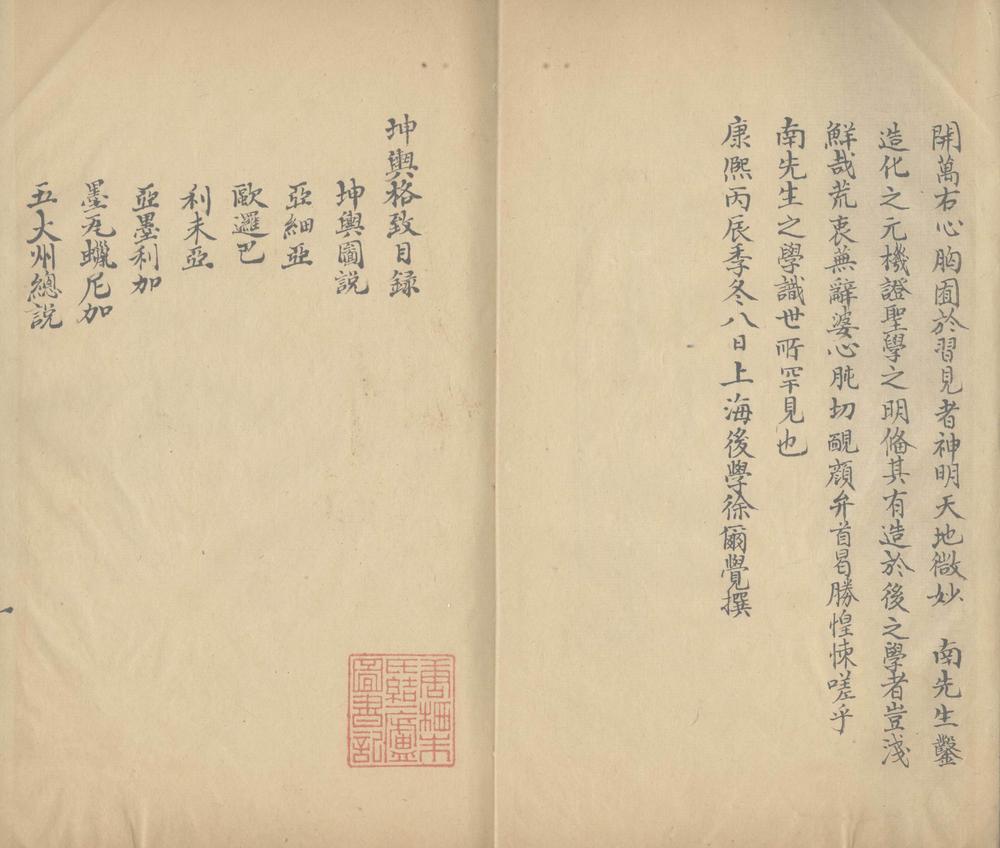 開萬古心胸囿於習見者神明天地微妙　南先生鑿
造化之元機證聖學之明俻其有造於後之學者豈淺
鮮哉荒衷蕪辭婆心肫切靦顔弁首曷勝惶悚嗟乎
南先生之學識世所罕見也
康熈丙辰季冬八日上海後學徐爾覺撰
坤輿格致目録
坤輿圖説
亞細亞
歐邏巴
利未亞
亞墨利加
墨瓦蠟尼加
五大州總説
唐栖朱
氏結一廬
圖書記